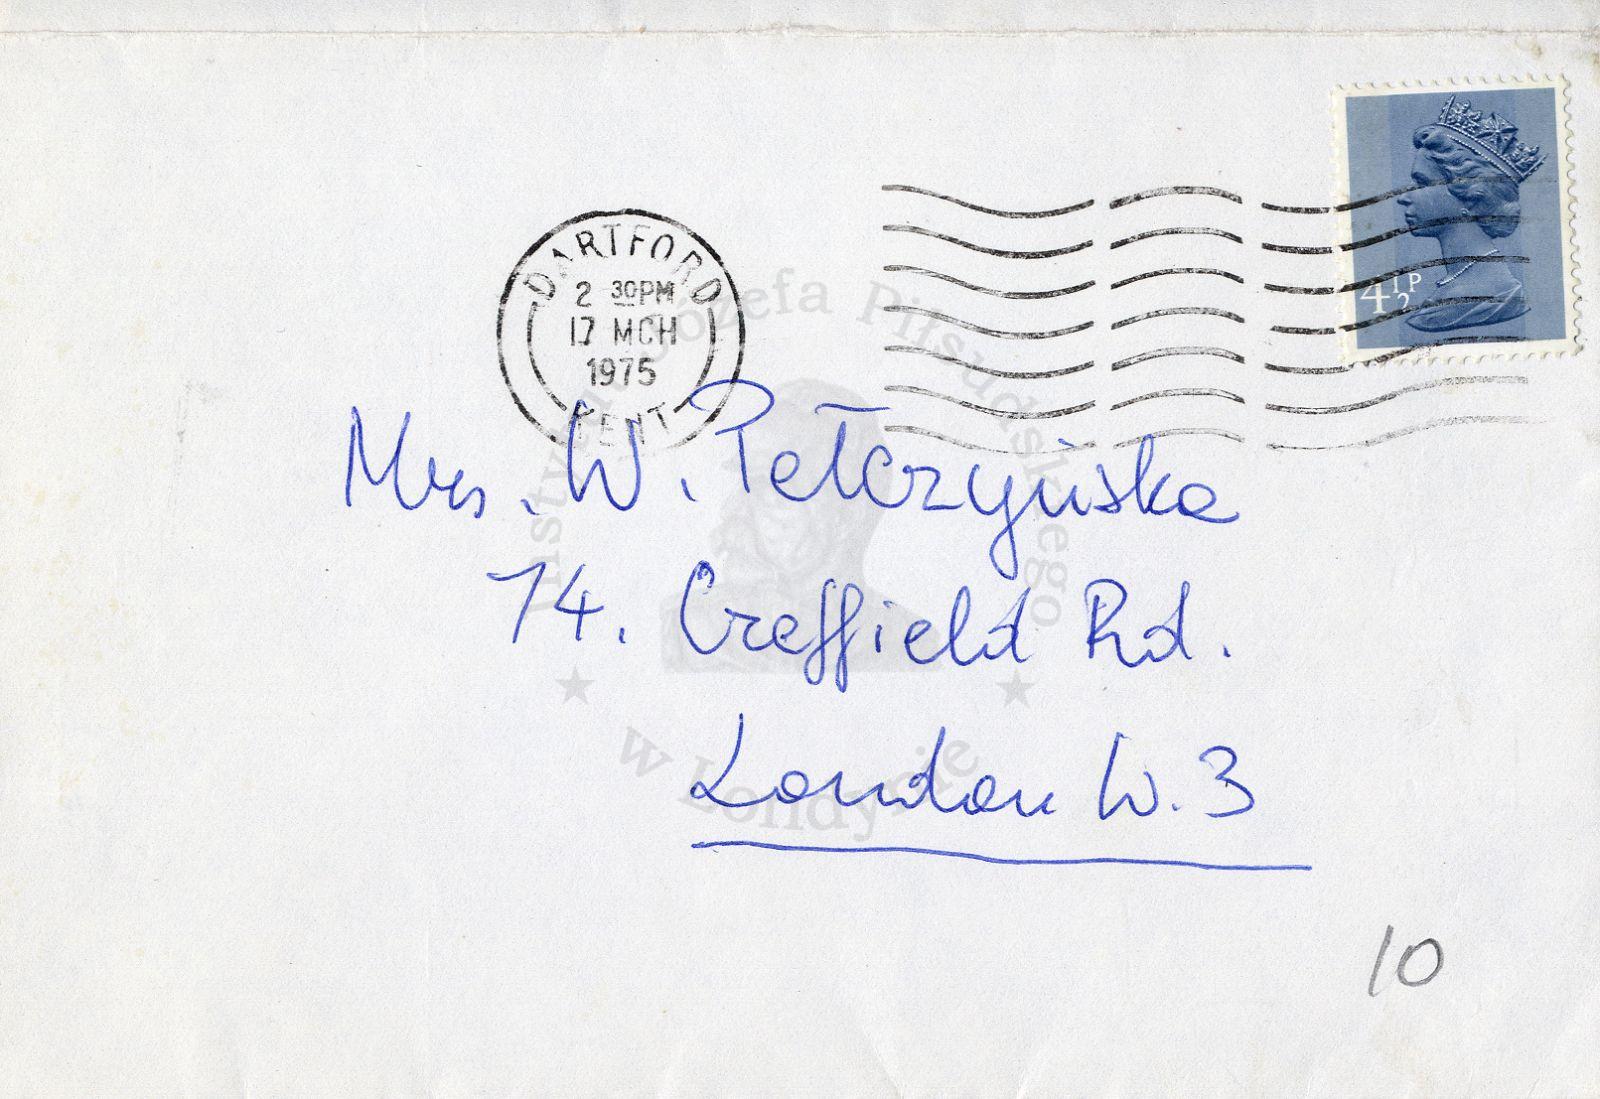 DARTFORD
2 30PM
17 MCH
1975
KENT
4½P
Mrs. W. Pełczyńska
74. Creffield Rd.
London W. 3
10
Instytut Józefa Piłsudskiego
w Londynie